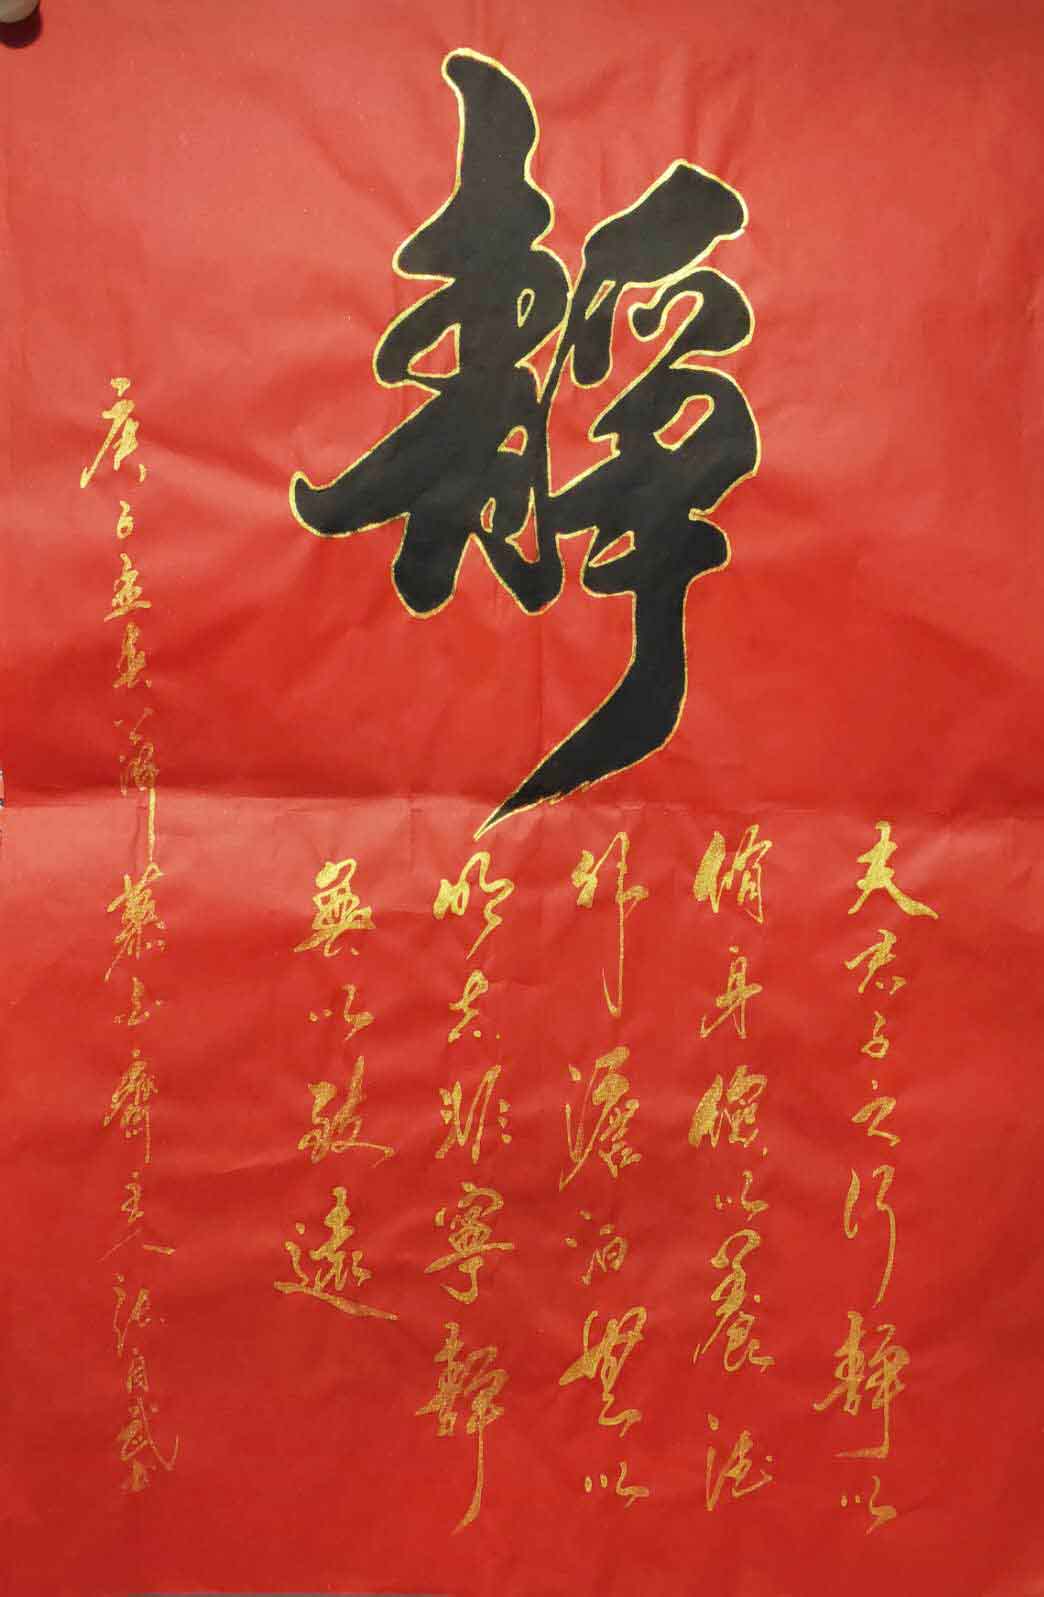 靜
夫君子之行靜以
脩身儉以養德
非澹泊無以
明志非寧靜
無以致遠
庚子孟春 慕白齋主人張自武